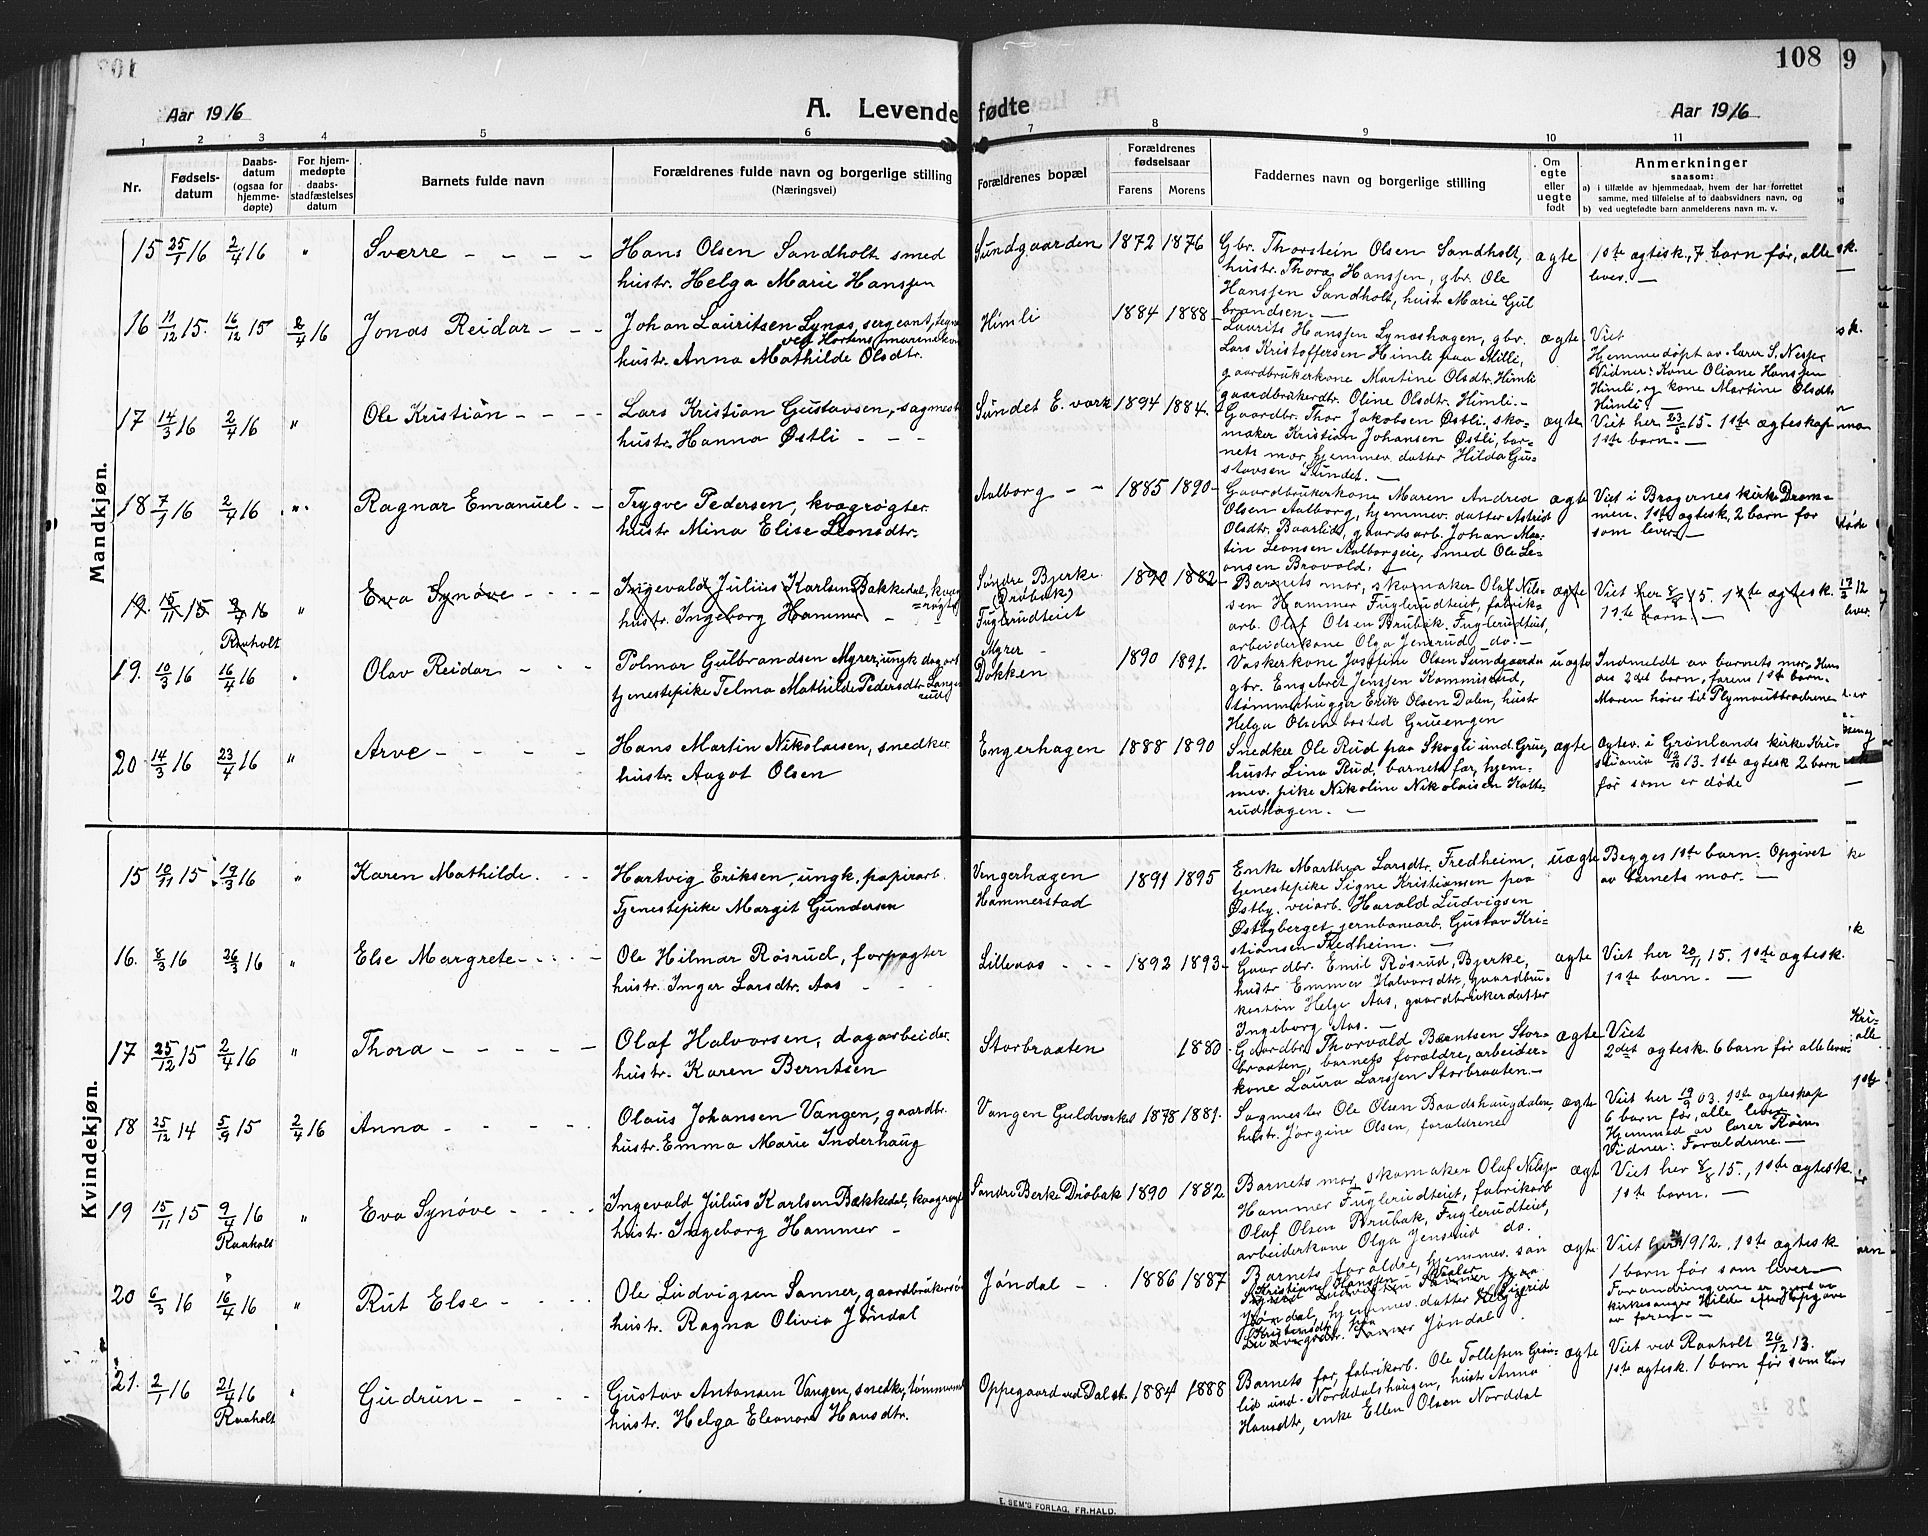 108
9
Aar 1916
A. Levende fødte
Aar 1916
1 2 3 4 5 6 7 8 9 10 11
Nr.
Fødsels-
datum
Daabs-
datum
(ogsaa for
hjemme-
døpte)
For hjem-
medøpte
daabs-
stadfæstelses
datum
Barnets fulde navn
Forældrenes fulde navn og borgerlige stilling
(Næringsvei)
Forældrenes bopæl
Forældrenes
fødselsaar
Farens
Morens
Faddernes navn og borgerlige stilling
Om
egte
eller
uegte
født
Anmerkninger
saasom:
a) i tilfælde av hjemmedaab, hvem der har forrettet
samme, med tilføielse af to daabsvidners navn, og
b) ved uegtefødte barn anmelderens navn m. v.
Mandkjøn.
15 25/1 16 2/4 16 " Sverre
Hans Olsen Sandholt smed
hustr. Helga Marie Hanssen
Sundgaarden 1872 1876
Gbr. Thorstein Olsen Sandholt,
hustr. Thora Hanssen, gbr. Ole
Hanssen Sandholt, hustr Marie Gul
brandsen.
ægte
1ste ægtesk., 7 barn før, alle
lever.
16 11/12 15. 16/12 15 2/4 16 Jonas Reidar
Johan Lauritsen Lynas, sergeant,
ved Hortens
hustr. Anna Mathilde Olsdtr.
Himli 1884 1888
Laurits Hanssen Lynashagen, gbr.
Lars Kristoffersen Himli paa Milli,
gaardbrukerkone Martine Olsdtr. Himli
gaardbrukerdtr. Oline Olsdtr. Himli.
ægte.
Viet
Hjemmedøpt av lærer S. Nesje
Vidner: Kone Oliane Hanssen
Himli, og kone Martine Olsdtr
Himli
17 14/3 16 2/4 16 " Ole Kristian
Lars Kristian Gustavsen, sagmest.
hustr. Hanna Østli
Sundet E. værk 1894 1884.
Gaardbr. Thor Jakobsen Østli, sko-
maker Kristian Johansen Østli, bar-
nets mor, hjemmev. datter Hilda Gus-
stavsen Sundet.
ægte
Viet her 23/5 15. 1ste ægteskap
1ste barn.
18 7/1 16 2/4 16 " Ragnar Emanuel
Trygve Pedersen, kvægrøgter
hustr Mina Elise Leonsdtr.
Aalborg 1885 1890
Gaardbrukerkone Maren Andrea
Olsen Aalborg, hjemmev. datter Astrid
Olsdtr. Baarlid, gaardsarb. Johan Mar-
tin Leonsen Aalborgeie, smed Ole Le-
onsen Brovold.
ægte
Viet i Bragernes kirke Dram-
men. 1ste ægtesk, 2 barn før
som lever
19. 15/11 15 9/4 16 " Eva Synøve
Raaholt
Ingevald Julius Karlsen Bækkedal, kvæg
røgter
hustr. Ingeborg Hammer
Søndre Bjerke
(Drøbak)
Fuglerudteiet
1890 1882
Barnets mor, skomaker Olaf Nils-
sen Hammer Fuglerudteiet, fabrik-
arb. Olaf Olsen Brubak, Fuglerudteiet,
arbeiderkone Olga Jensrud do.
ægte
Viet her 8/8 15. 1ste ægtesk.
1ste barn
19. 10/3 16 16/4 16 " Olav Reidar
Polmar Gulbrandsen Myrer, ungk. dagarb.
tjenestepike Telma Mathilde Pedersdtr Lange
rud
Myrer
Dokken
1890 1891.
Vaskerkone Josefine Olsen Sundgaarden
gbr. Engebret Jenssen Kommisrud,
tømmerhugger Erik Olsen Dalen, hustr
Helga Olsen bosted Grueengen
uægte
Indmeldt av barnets mor. Hen
des 2det barn, farens 1ste barn.
Moren hører til Plymouthbrødrene
20 14/3 16 23/4 16 " Arve
Hans Martin Nikolaisen, snedker
hustr. Aagot Olsen
Engerhagen 1888 1890
Snedker Ole Rud paa Skogli und. Grue,
hustr Lina Rud, barnets far, hjem-
mev. pike Nikoline Nikolaisen Kolte-
rudhagen.
ægte
Ægtev. i Grønlands kirke Kri-
stiania 12/10 13. 1ste ægtesk 2 barn
før som er døde
Kvindekjøn.
15 10/11 15 19/3 16 " Karen Mathilde.
Hartvig Eriksen, ungk, papirarb.
Tjenestepike Margit Gundersen
Vengerhagen
Hammerstad
1891 1895
Enke Marthea Larsdtr. Fredheim,
tjenestepike Signe Kristiansen paa
Østby, veiarb. Harald Ludvigsen
Østbyberget, jernbanearb. Gustav Kri-
stiansen Fredheim.
uægte
Begges 1ste barn. Opgivet
av barnets mor.
16. 8/3 16 26/3 16 " Else Margrete
Ole Hilmar Røsrud, forpagter
hustr. Inger Larsdtr. Aas
Lilleaas 1892 1893
Gaardbr. Emil Røsrud, Bjerke,
hustr Emma Halvorsdtr, gaardbru-
kersøn Helge Aas, gaardbrukerdatter
Ingeborg Aas.
ægte
Viet her 20/11 15. 1ste ægtesk.
1ste barn.
17 25/12 15 2/4 16 " Thora
Olaf Halvorsen, dagarbeider
hustr. Karen Berntsen
Storbraaten 1880
Gaardbr. Thorvald Berntsen Stor-
braaten, barnets forældre, arbeider-
kone Laura Larssen Storbraaten.
ægte
Viet
2det ægtesk. 6 barn før alle lever
18 25/12 14 5/9 15 2/4 16 Anna
Olaus Johansen Vangen, gaardbr.
hustr. Emma Marie Inderhaug
Vangen Guldverket 1878 1881.
Sagmester Ole Olsen Baadshaugdalen,
hustr. Jørgine Olsen, forældrene
ægte
Viet her 19/9 03. 1ste ægteskap
6 barn før, alle lever
Hjemmed av lærer Röen
Vidner: Forældrene.
19 15/11 15 9/4 16 " Eva Synøve
Raaholt
Ingevald Julius Karlsen Bækkedal, kvægrøgter
hustr. Ingeborg Hammer
Søndre Berke Drøbak 1890 1882
Barnets mor, skomaker Olaf Nilsse
Hammer Fuglerudteiet, fabrikarb
Olaf Olsen Brubak, Fuglerudteiet,
arbeiderkone Olga Jensrud do.
ægte
Viet her 8/8 15., 1ste ægtesk
1ste barn.
20 6/3 16 16/4 16 " Rut Else
Ole Ludvigsen Sanner, gaardbrukersøn
hustr. Ragna Olivia Jøndal
Jøndal 1886 1887
Barnets forældre, hjemmev. søn
Kristian Hanssen
Jøndal, hjemmev. datter
Jøndal
ægte
Viet her 1912. 1ste ægtesk
1 barn før som lever
Forandringerne er gjord av
kirkesanger Hilde efter opgave
av faren
21. 2/1 16 21/4 16 " Gudrun
Raaholt
Gustav Antonsen Vangen, snedker, tømmerm
hustr. Helga Eleonora Hansdtr.
Oppegaard ved Dal st. 1884 1888
Barnets far, fabrikarb. Ole Tollefsen Grøn-
lid und. Norddalshaugen, hustr Anna
Hansdtr, enke Ellen Olsen Norddal
ægte
Viet ved Raaholt 26/12 13.
1ste ægtesk. 1 barn før som lever
E. SEM'S FORLAG, FR.HALD.